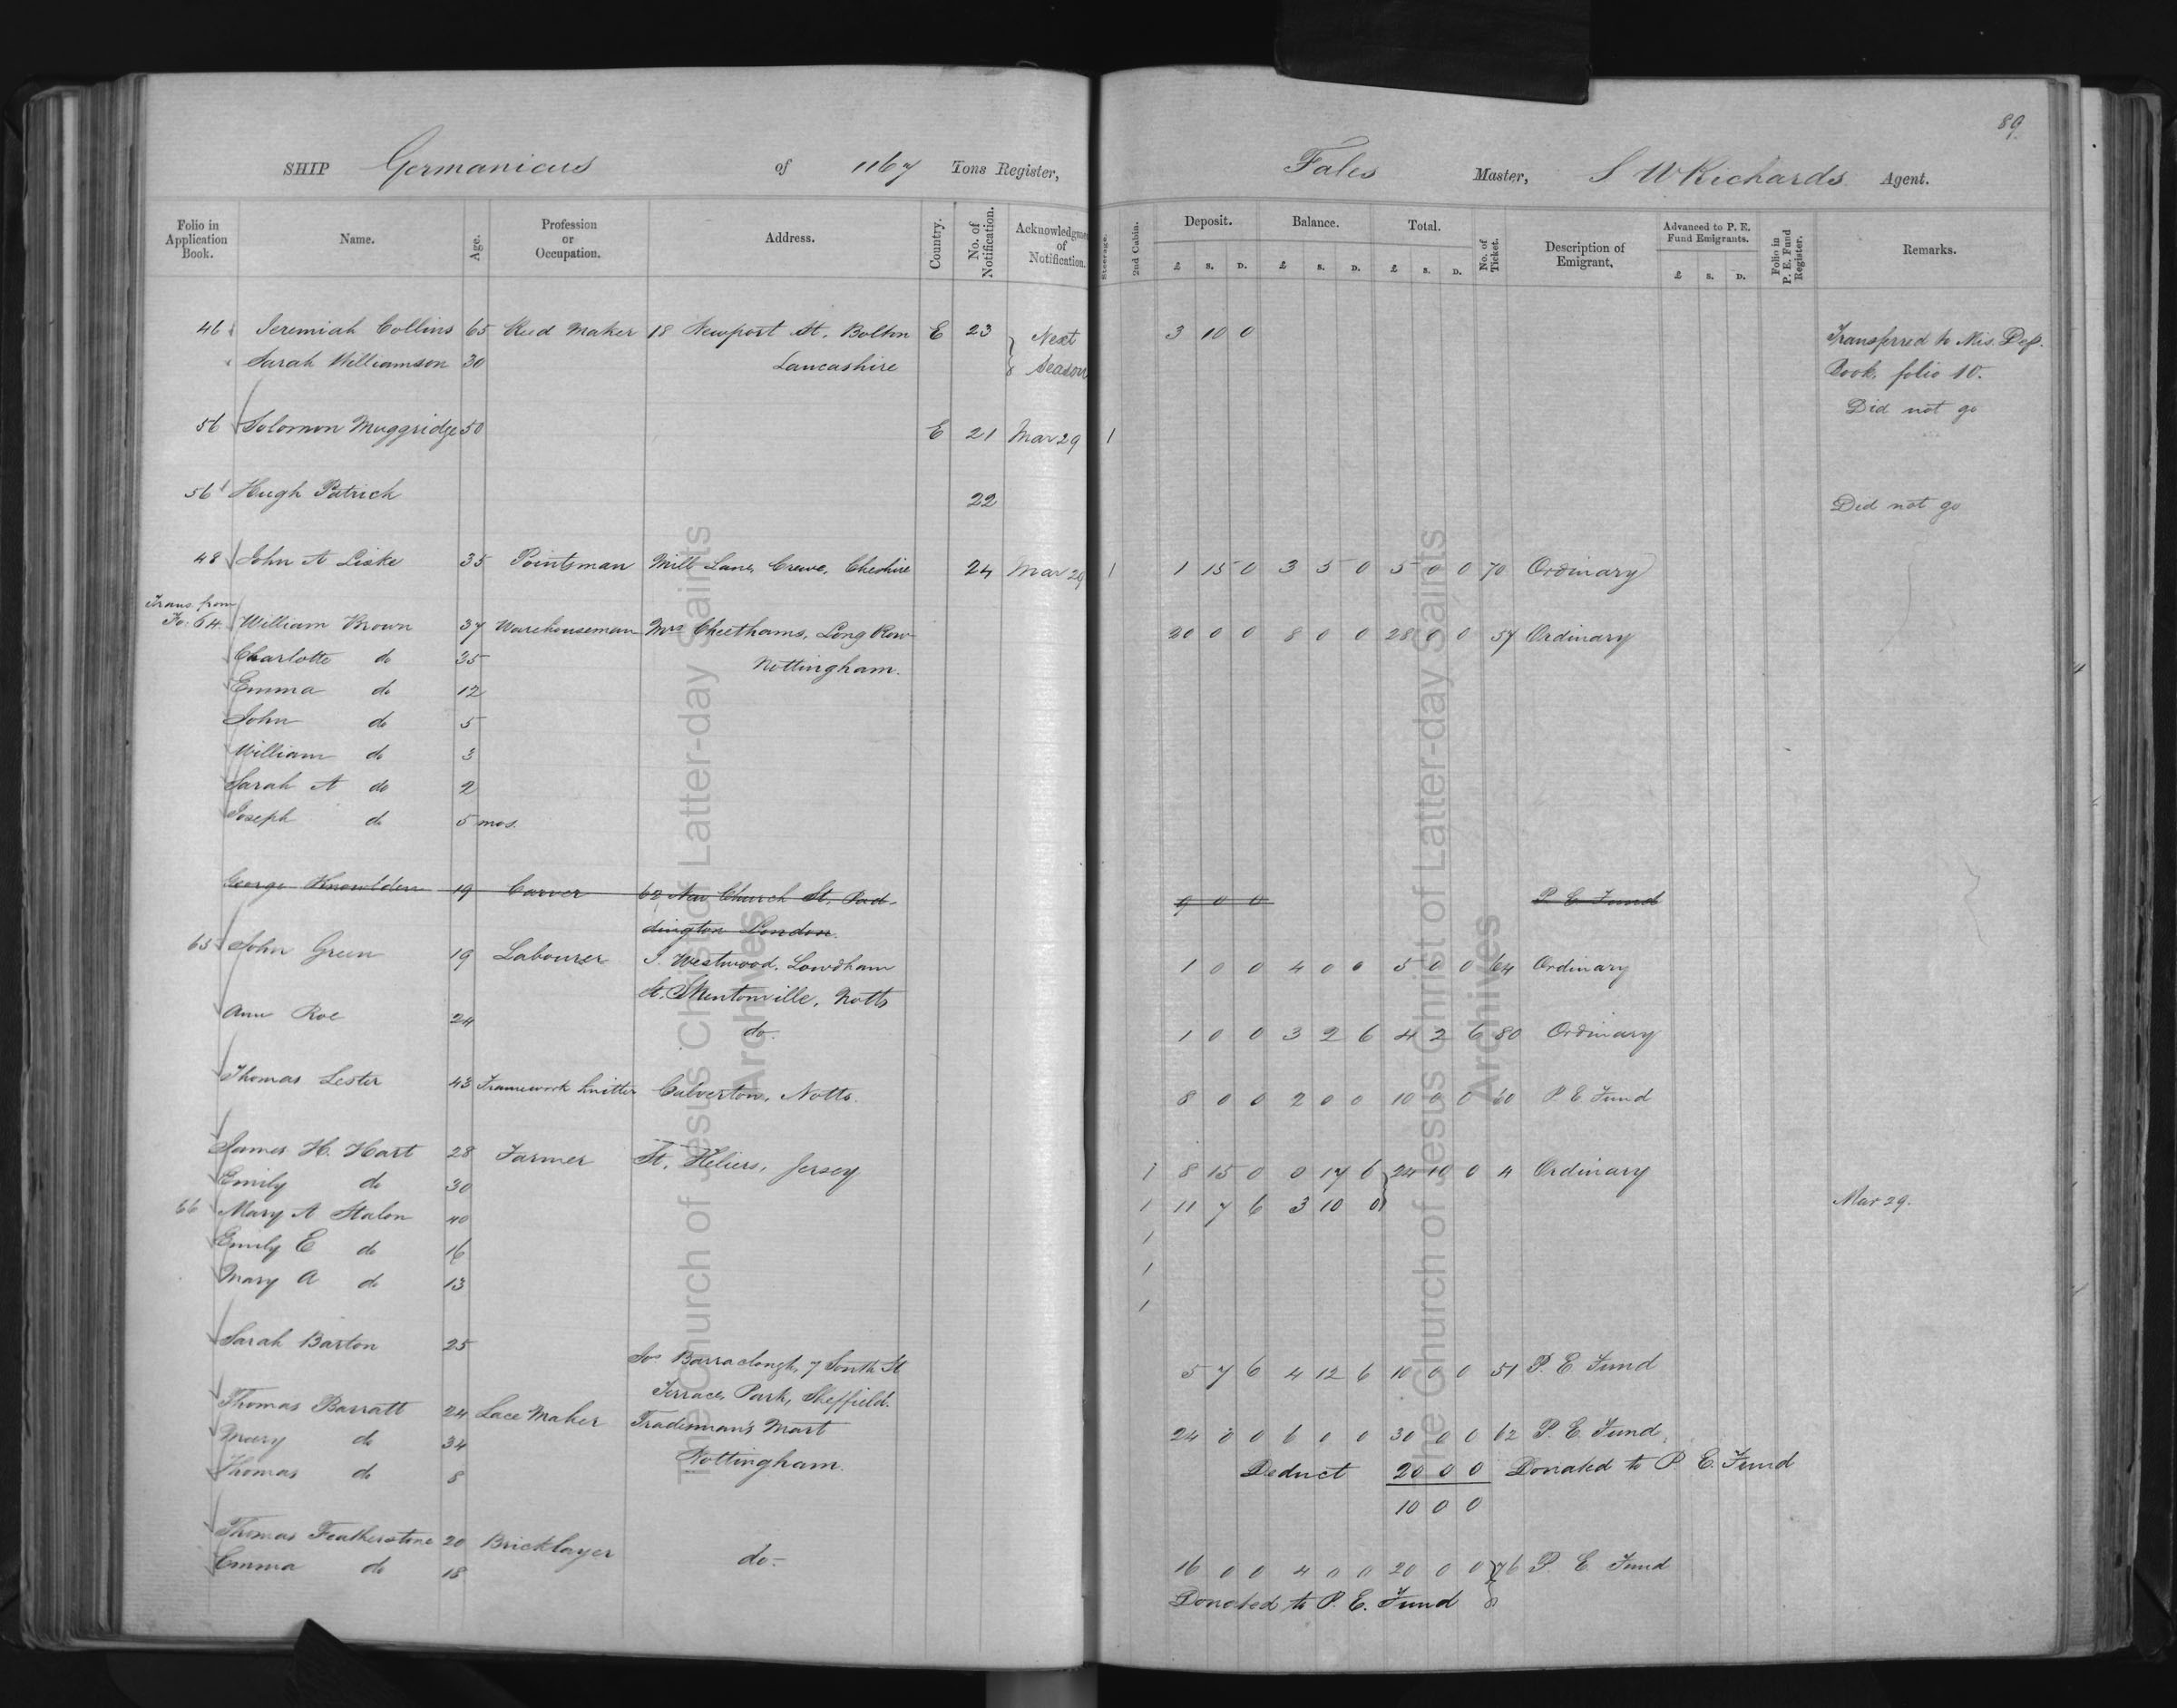 89
SHIP Germanicus of 1167 Tons Register, Fales Master, S W Richards Agent.
Folio in Application Book. Name. Age. Profession or Occupation. Address. Country. No. of Notification. Acknowledgment of Notification. Steerage. 2nd Cabin. Deposit. £ S. D. Balance. £ S. D. Total. £ S. D. No. of Ticket. Description of Emigrant. Advanced to P. E. Fund Emigrants. £ S. D. Folio in P. E. Fund Register. Remarks.
46 Jeremiah Collins 65 Reed Maker 18 Newport St, Bolton E 23 Next 3 10 0 Transferred to Mis. Dep.
Sarah Williamson 30 Lancashire Season Book, folio 10.
Did not go
56 Solomon Muggridge 50 E 21 Mar 29 1
56 Hugh Patrick 22 Did not go
48 John A Liske 35 Pointsman Mill Lane, Crewe, Cheshire 24 Mar 29 1 1 15 0 3 5 0 5 0 0 70 Ordinary
Trans. from
Fo. 64. William Brown 37 Warehouseman Mrs Cheethams, Long Row 20 0 0 8 0 0 28 0 0 57 Ordinary
Charlotte do 35 Nottingham.
Emma do 12
John do 5
William do 3
Sarah A do 2
Joseph do 5 mos.
George Knowlden 19 Carver 62 New Church St, Pad- 9 0 0 P. E. Fund
dington London.
65 John Green 19 Labourer J. Westwood, Lowdham 1 0 0 4 0 0 5 0 0 64 Ordinary
St, Notts
Ann Roe 24 do. 1 0 0 3 2 6 4 2 6 80 Ordinary
Thomas Lester 43 Framework knitter Calverton, Notts. 8 0 0 2 0 0 10 0 0 60 P E Fund
James H. Hart 28 Farmer St. Heliers, Jersey 1 8 15 0 0 17 6 24 10 0 4 Ordinary
Emily do 30 1 11 7 6 3 10 0 Mar 29.
66 Mary A Stalon 40 1
Emily E do 16 1
Mary A do 13 1
Sarah Barton 25 Jos Barraclough, 7 South St 5 7 6 4 12 6 10 0 0 51 P. E. Fund
Terrace, Park, Sheffield.
Thomas Barratt 24 Lace Maker Tradesman's Mart 24 0 0 6 0 0 30 0 0 62 P. E. Fund.
Mary do 34 Nottingham. Deduct 20 0 0 Donated to P E. Fund
Thomas do 8 10 0 0
Thomas Featherstone 20 Bricklayer do- 16 0 0 4 0 0 20 0 0 76 P. E. Fund
Emma do 18 Donated to P. E. Fund
The Church of Jesus Christ of Latter-day Saints
Archives
The Church of Jesus Christ of Latter-day Saints
Archives